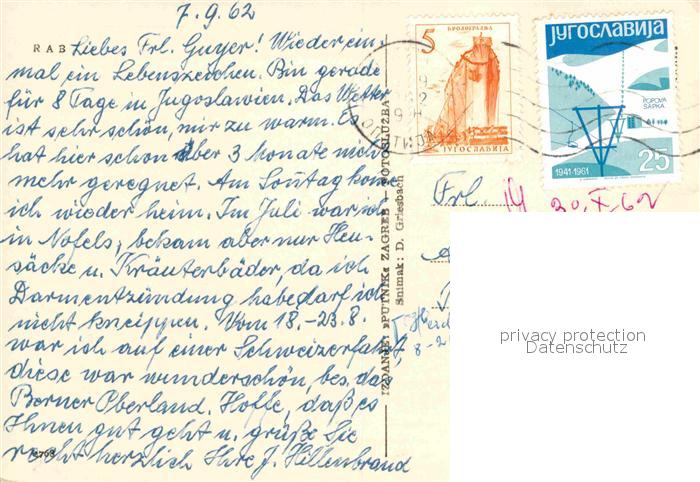 7.9.62
RAB
Liebes Frl. Guyer! Wieder ein-
mal ein Lebenszeichen. Bin gerade
für 8 Tage in Jugoslawien. Das Wetter
ist sehr schön, mir zu warm. Es
hat hier schon über 3 Monate nicht
mehr geregnet. Am Sonntag kom
ich wieder heim. Im Juli war ich
in Nofels, bekam aber nur Heu-
säcke u. Kräuterbäder, da ich
Darmentzündung habe darf ich
nicht kneippen. Vom 18.-23.8.
war ich auf einer Schweizerfahrt,
diese war wunderschön, bes. das
Berner Oberland. Hoffe, daß es
Ihnen gut geht u. grüße Sie
recht herzlich Ihre J. Hillenbrand
IZDANJE: »PUTNIK« ZAGREB — FOTOSLUŽBA
Snimak: D. Griesbach
5
ЈУГОСЛАВИЈА
југославија
POPOVA
ŠAPKA
1941-1961
25
Frl.
30.X.62
privacy protection
Datenschutz